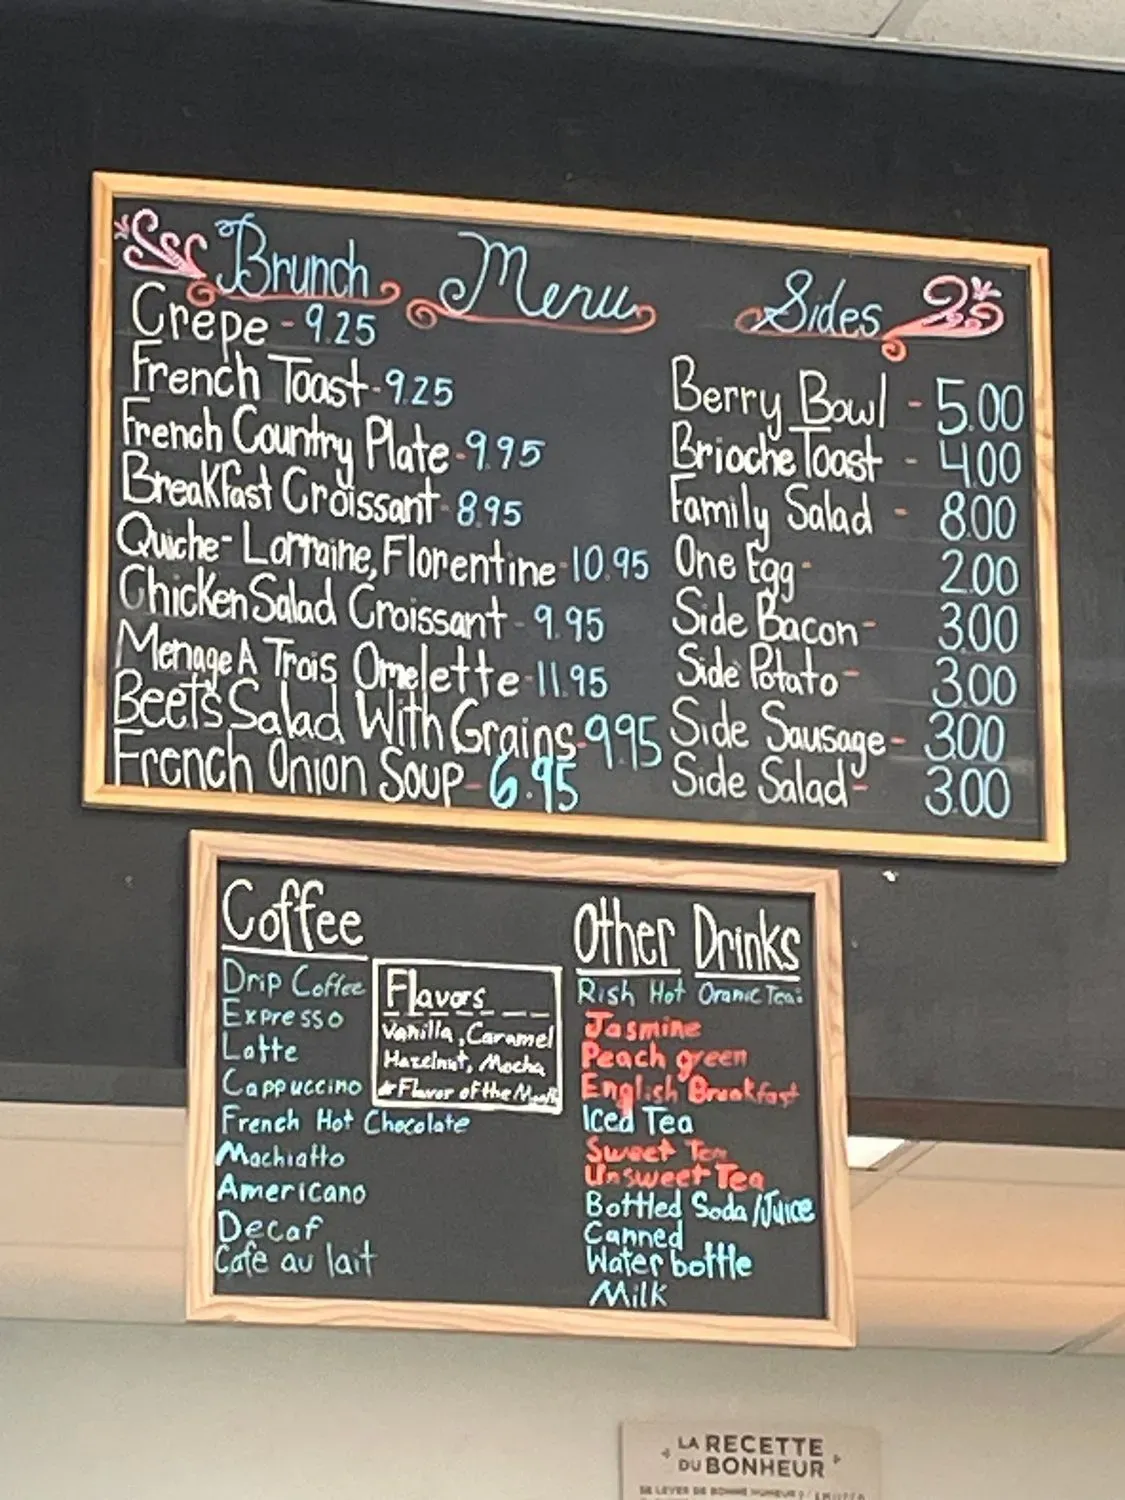 Brunch Menu
Crepe - 9.25
French Toast - 9.25
French Country Plate - 9.95
Breakfast Croissant - 8.95
Quiche - Lorraine, Florentine - 10.95
Chicken Salad Croissant - 9.95
Menage A Trois Omelette - 11.95
Beets Salad With Grains - 9.95
French Onion Soup - 6.95
Sides
Berry Bowl - 5.00
Brioche Toast - 4.00
Family Salad - 8.00
One Egg - 2.00
Side Bacon - 3.00
Side Potato - 3.00
Side Sausage - 3.00
Side Salad - 3.00
Coffee
Drip Coffee
Expresso
Latte
Cappuccino
French Hot Chocolate
Machiatto
Americano
Decaf
Cafe au lait
Flavors
Vanilla, Caramel
Hazelnut, Mocha
* Flavor of the Month
Other Drinks
Rish Hot Oranic Tea:
Jasmine
Peach green
English Breakfast
Iced Tea
Sweet Tea
Unsweet Tea
Bottled Soda/Juice
Canned
Water bottle
Milk
LA RECETTE
DU BONHEUR
SE LEVER DE BONNE HUMEUR